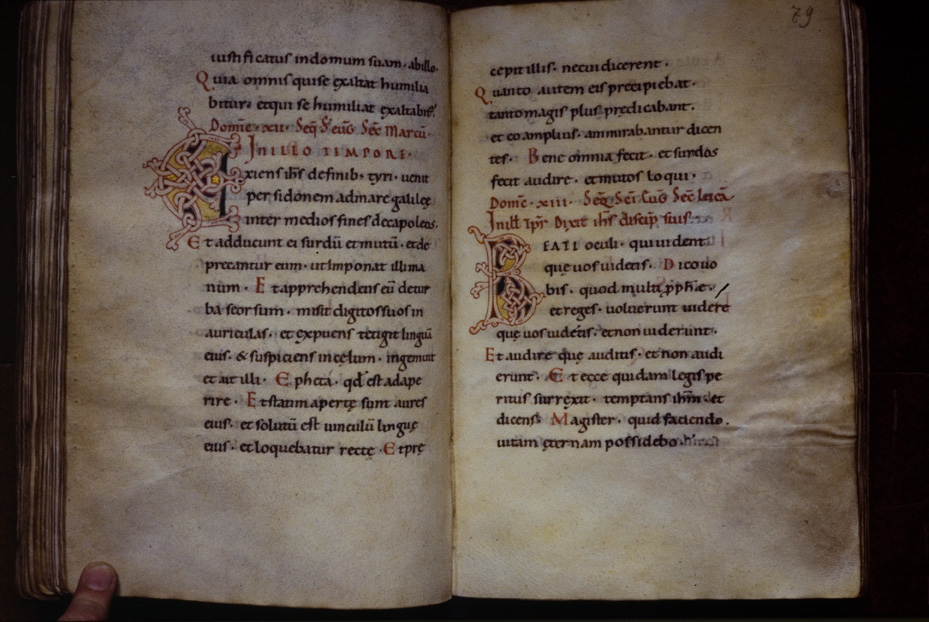 iustificatus in domum suam · ab illo ·
Quia omnis qui se exaltat humilia
bitur · et qui se humiliat exaltabit᷑
Domīe · xii · Seq̄ S̄ eūg Sēc Marcū ·
IN ILLO TEMPORE ·
Exiens ih̄s de finib · tyri · uenit
per sidonem ad mare galileę
inter medios fines decapoleos ·
Et adducunt ei surdū et mutū · et de
precantur eum · ut imponat illi ma
num · Et apprehendens eū de tur
ba seorsum · misit digitos suos in
auriculas · et expuens tetigit linguā
eius · & suspiciens in cęlum · ingemuit
et ait illi · Epheta · qd̄ est adape
rire · Et statim apertę sunt aures
eius · et solutū est uinculū linguę
eius · et loquebatur rectę · Et prę
79
cepit illis · ne cui dicerent ·
Quanto autem eis pręcipiebat ·
tanto magis plus prędicabant ·
et eo amplius · ammirabantur dicen
tes · Bene omnia fecit · et surdos
fecit audire · et mutos loqui ·
Domīe · xiii · Seq̄ Sēi Eūg Sēc
In ill̄ tp̄r Dixit ih̄s discip̄ suis ·
BEATI oculi · qui uident
quę uos uidetis · Dico uo
bis · quod multi p̄phę̄ ·
et reges · uoluerunt uidere
quę uos uidetis · et non uiderunt ·
Et audire quę auditis · et non audi
erunt · Et ecce quidam legis pe
ritus surrexit · temptans ih̄m · et
dicens · Magister · quid faciendo ·
uitam ęternam possidebo ·